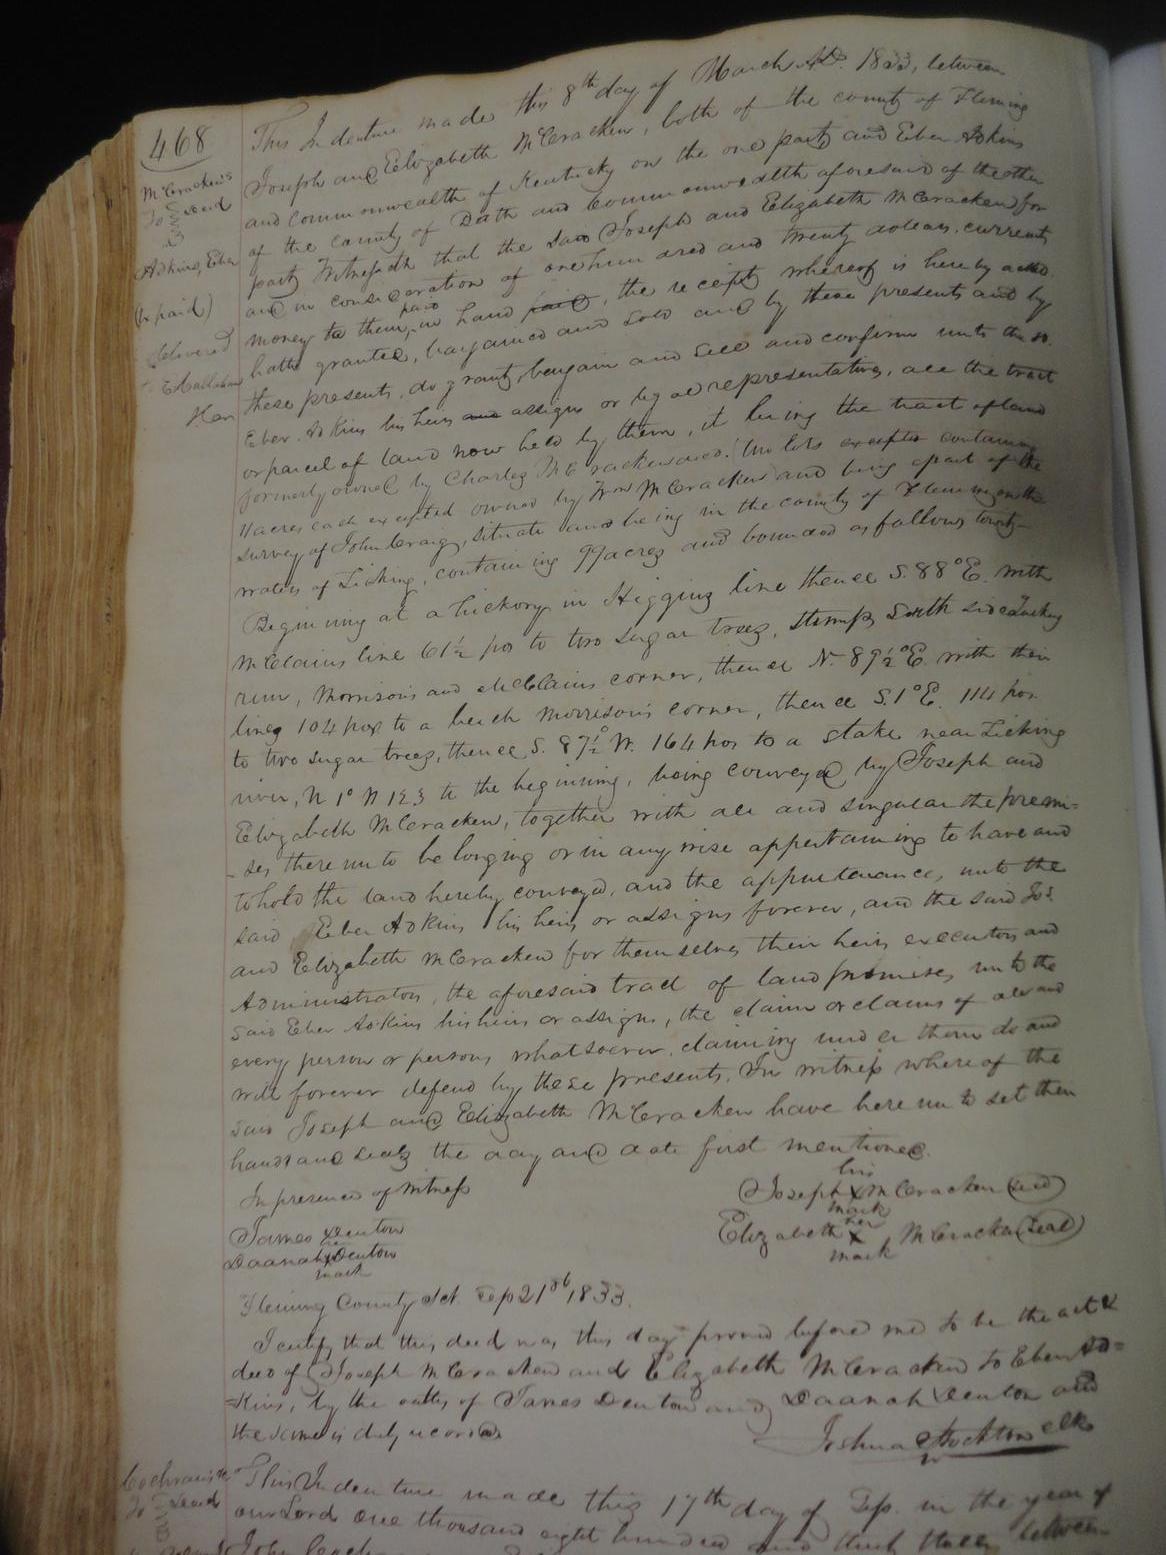 468
McCracken's
To Deed
Adkins, Eber
(Ex paid)
delivered
E Callahan
Han
This Indenture made this 8th day of March AD. 1833, between
Joseph and Elizabeth McCracken, both of the county of Fleming
and commonwealth of Kentucky on the one party and Eber Adkins
of the county of Bath and Commonwealth aforesaid of the other
party Witnesseth that the said Joseph and Elizabeth McCracken for
and in consideration of one hundred and twenty dolears, current
money to them, paid in hand paid, the receipt whereof is hereby
hath granted, bargained and sold and by these presents and by
these presents, do grant, bargain and sell and confirm unto the sd.
Eber Adkins his heirs and assigns or legal representatives, all the tract
or parcel of land now held by them, it being the tract of land
formerly owned by Charles McCracken decd. (two lots excepted containing
11 acres each excepted owned by Wm McCracken) and being a part of the
survey of John Craig, situate and being in the county of Fleming on the
waters of Licking, containing 99 acres and bounded as follows towit
Beginning at a hickory in Higgins line thence S. 88° E. with
McClains line 61½ pos to two sugar trees, stump, South side Locking
run, Morrison's and McClains corner, thence N. 89½° E. with their
lines 104 pos to a beech Morrison's corner, thence S. 1° E. 114 pos
to two sugar trees, thence S. 87½° W. 164 pos to a stake near Licking
river, N 1° W 123 to the beginning, being conveyed by Joseph and
Elizabeth McCracken, together with all and singular the premi=
-ses thereunto belonging or in any wise appertaining to have and
to hold the land hereby conveyed, and the appurtenances, unto the
said Eber Adkins his heirs or assigns forever, and the said Jos.
and Elizabeth McCracken for themselves their heirs executors and
Administrators, the aforesaid tract of land premises unto the
said Eber Adkins his heirs or assigns, the claim or claims of all and
every person or persons whatsoever, claiming under them do and
will forever defend by these presents. In witness whereof the
said Joseph and Elizabeth McCracken have hereunto set their
hands and seals the day and date first mentioned.
In presence of Witness
his
Joseph X McCracken (seal)
mark
James Denton
her
Elizabeth X McCracken (seal)
mark
her
Daanah X Denton
mark
Fleming County Sct. Sep 21st 1833.
I certify that this deed was this day proven before me to be the act &
deed of Joseph McCracken and Elizabeth McCracken to Eber Ad=
=kins, by the oaths of James Denton and Daanah Denton and
the same is duly recorded
Joshua Stockton clk
Cochran's &c
To Deed
This Indenture made this 17th day of Sep. in the year of
our Lord one thousand eight hundred and thirty three between
John